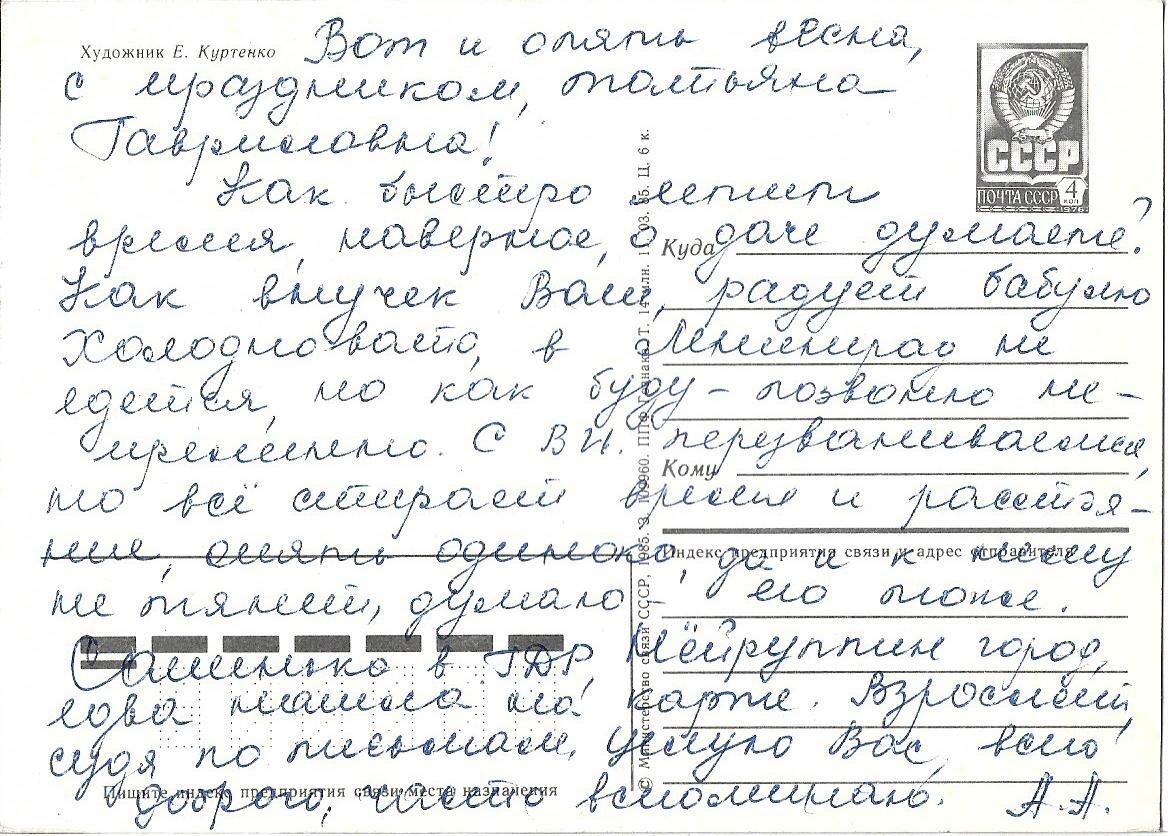 Художник Е. Куртенко
Вот и опять весна,
с праздником, Татьяна
Гавриловна!
Как быстро летит
время, наверное, о даче думаете?
Как внучек Ваш, радует бабулю
Холодновато, в Ленинград не
едется, но как буду – позвоню не-
пременно. С В.И. перезваниваемся,
но всё стирает время и расстоя-
ние, опять одиноко, да и к нему
не тянет, думаю – его тоже.
Сашенька в ГДР, Нейруппин город,
едва нашла на карте. Взрослеет,
судя по письмам. Целую Вас, всего
доброго, часто вспоминаю. А.А.
СССР
ПОЧТА СССР 4 КОП
1976
Куда
Кому
Индекс предприятия связи и адрес отправителя
Пишите индекс предприятия связи места назначения
© Министерство связи СССР, 1985. ППФ Гознака. 03. 85. Ц. 6 к.